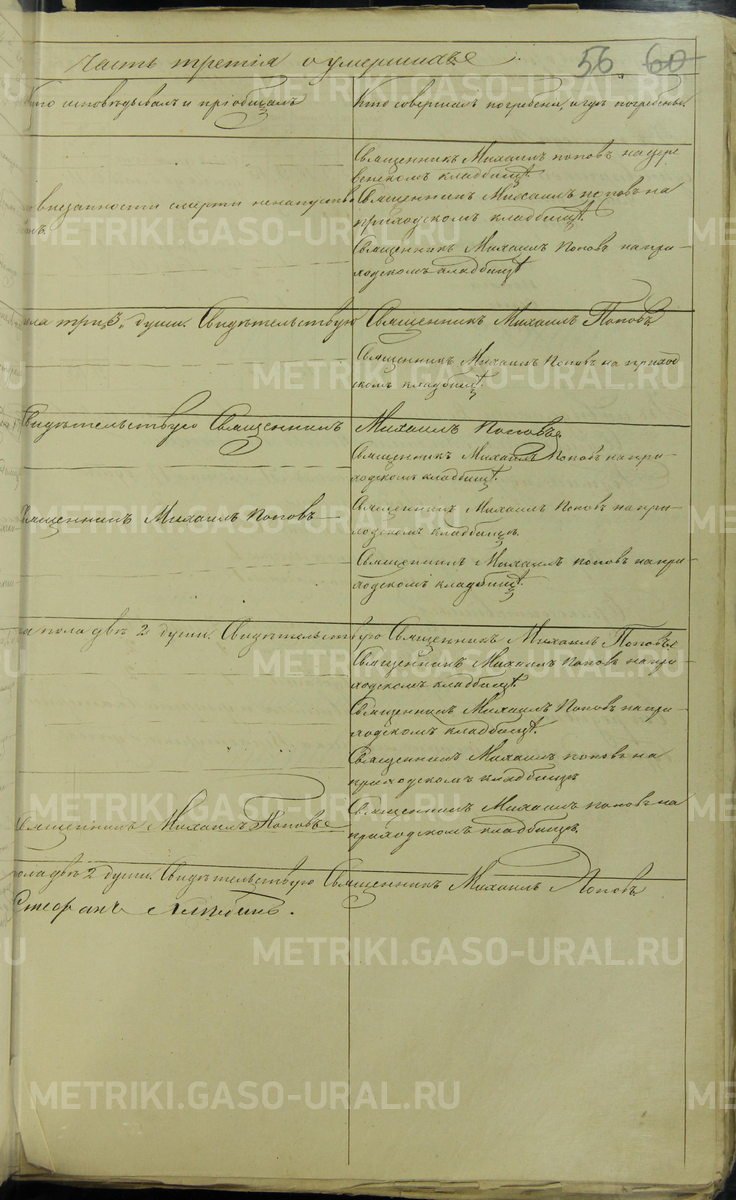 Часть третія о умершихъ. 56 60
Кто исповѣдывалъ и пріобщалъ
Кто совершалъ погребеніе, и гдѣ погребены.
Священникъ Михаилъ Поповъ на дере-
венскомъ кладбищѣ.
внезапности смерти ненапутство
Священникъ Михаилъ Поповъ на
приходскомъ кладбищѣ.
Священникъ Михаилъ Поповъ на при-
ходскомъ кладбищѣ
три „3„ души. Свидѣтельствую Священникъ Михаилъ Поповъ
Священникъ Михаилъ Поповъ на приход
скомъ кладбищѣ.
Свидѣтельствую Священникъ Михаилъ Поповъ
Священникъ Михаилъ Поповъ на при-
ходскомъ кладбищѣ.
Священникъ Михаилъ Поповъ
Священникъ Михаилъ Поповъ на при-
ходскомъ кладбищѣ.
Священникъ Михаилъ Поповъ на при-
ходскомъ кладбищѣ.
пола двѣ 2 души. Свидѣтельствую Священникъ Михаилъ Поповъ
Священникъ Михаилъ Поповъ на при-
ходскомъ кладбищѣ.
Священникъ Михаилъ Поповъ на при-
ходскомъ кладбищѣ.
Священникъ Михаилъ Поповъ на
приходскомъ кладбищѣ
Священникъ Михаилъ Поповъ
Священникъ Михаилъ Поповъ на
приходскомъ кладбищѣ.
пола двѣ 2 души. Свидѣтельствую Священникъ Михаилъ Поповъ
Стефанъ
METRIKI.GASO-URAL.RU